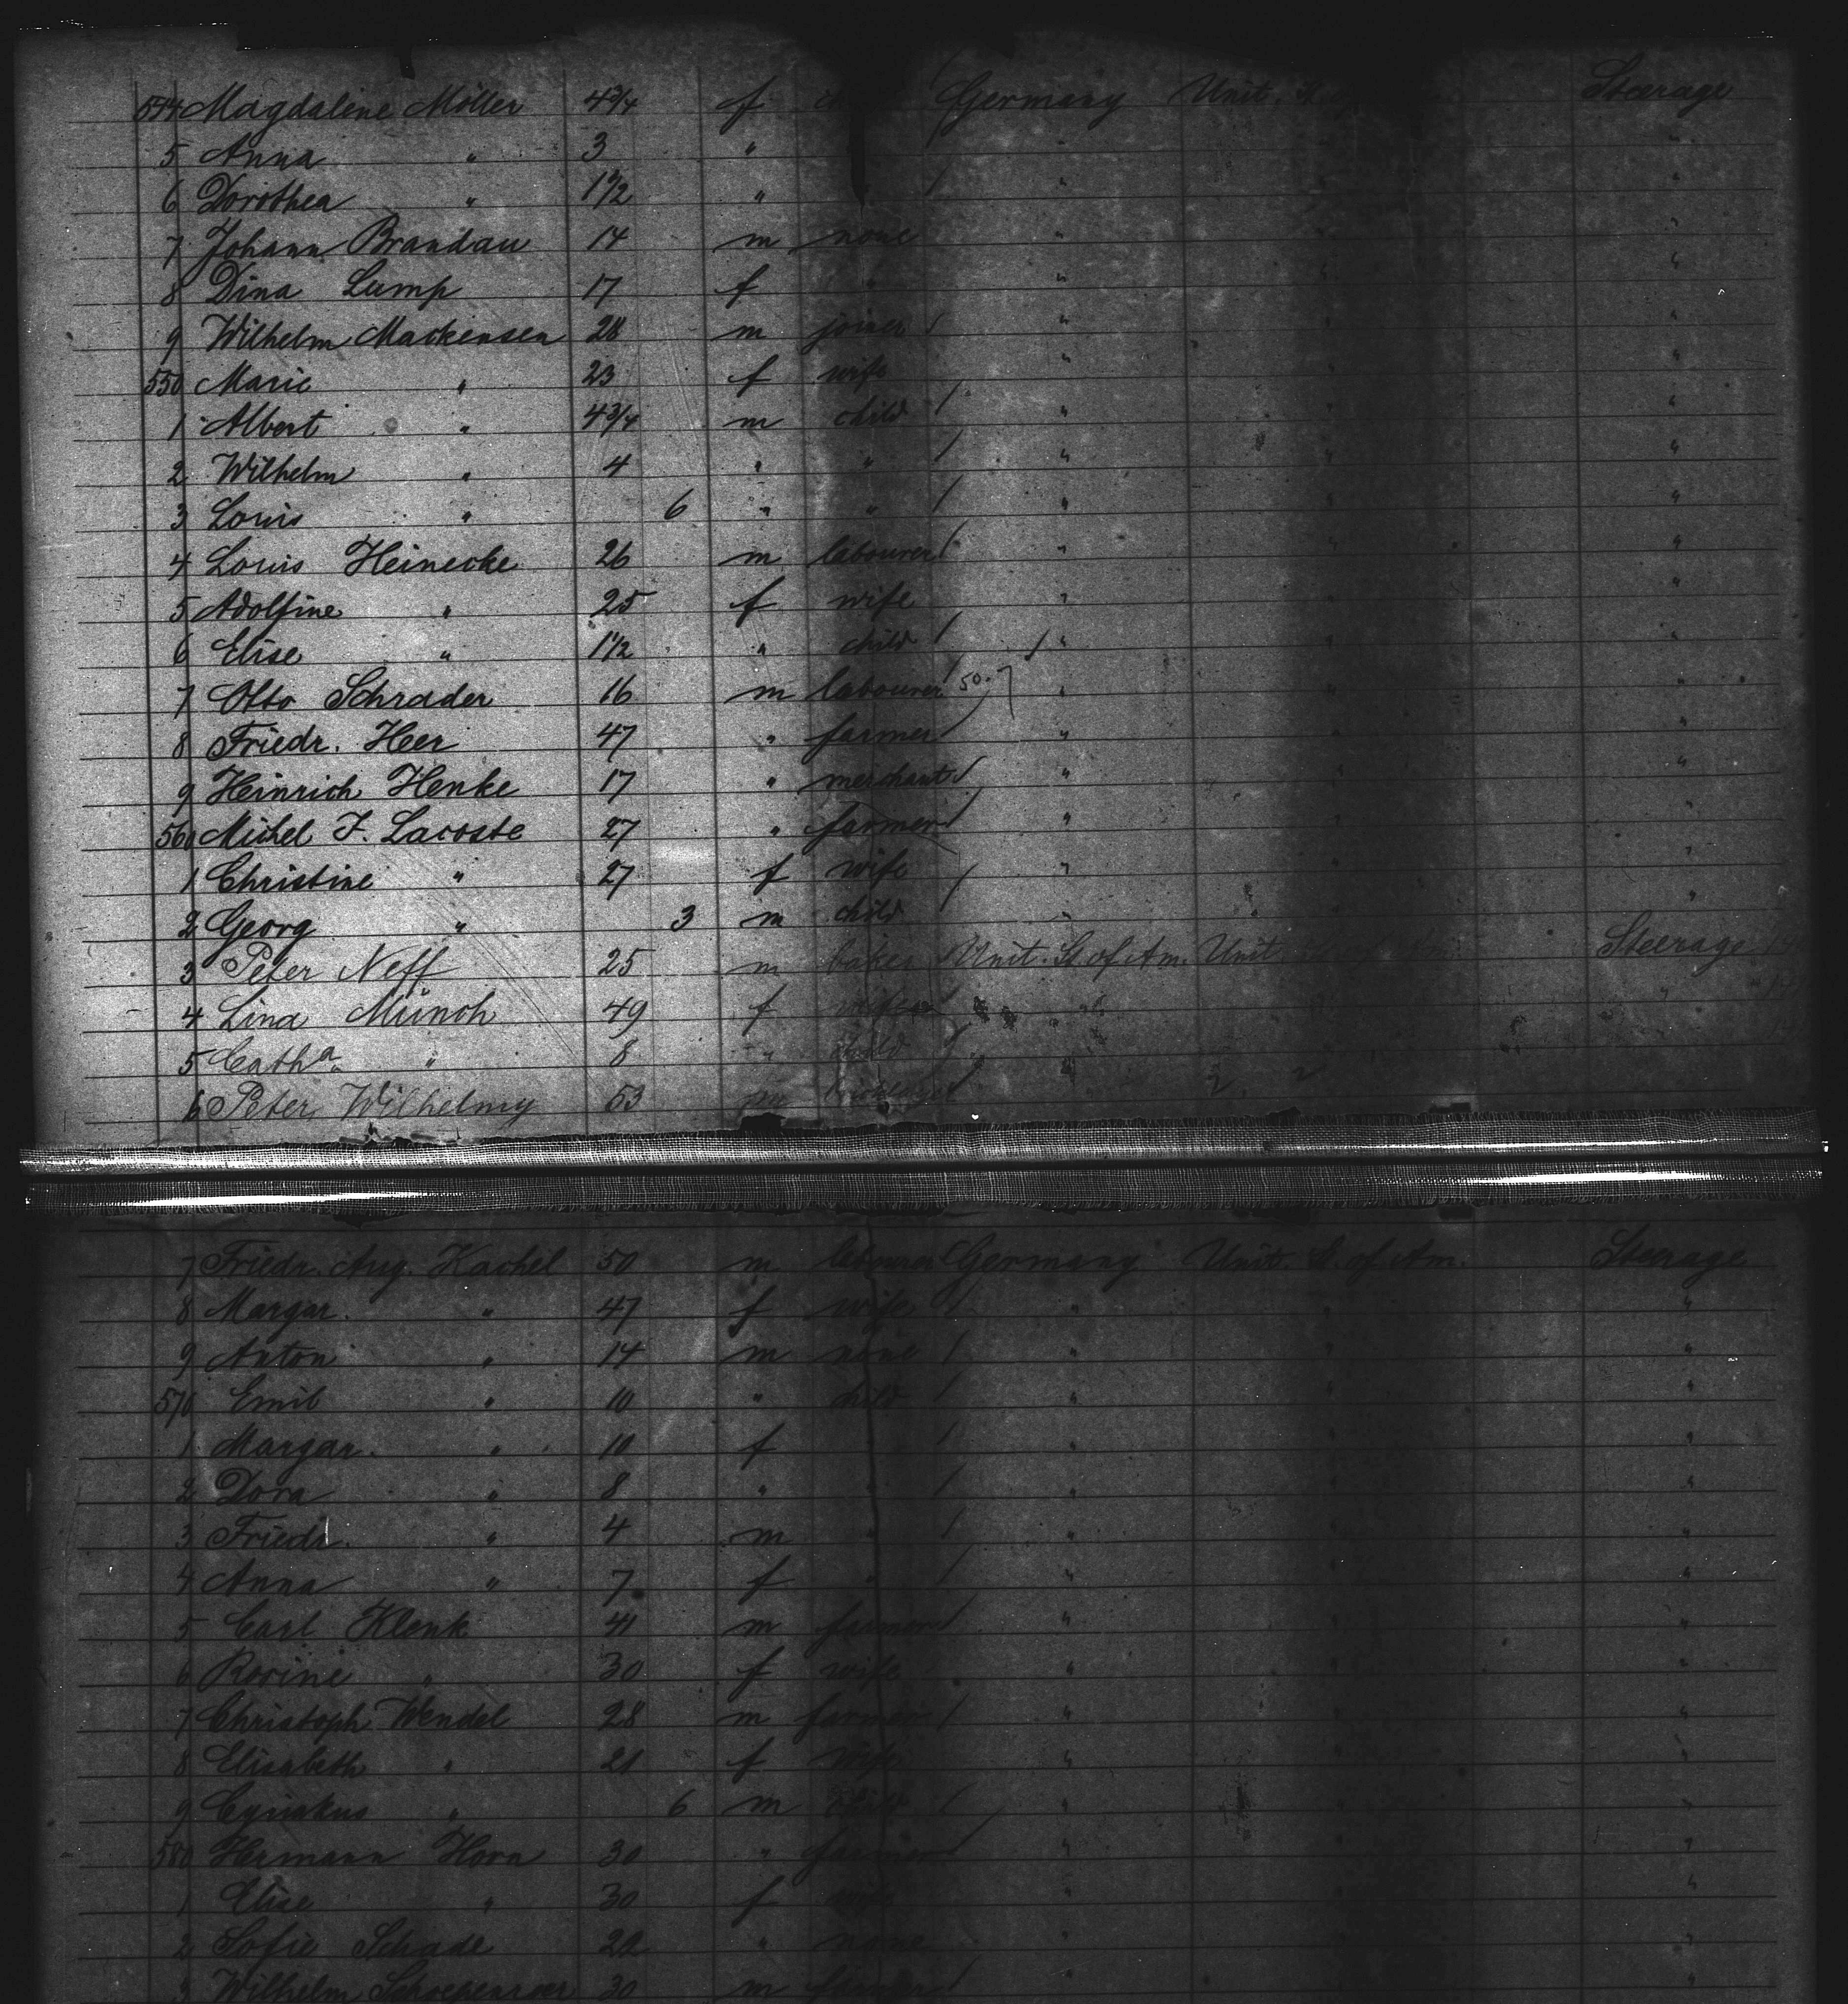 544 Magdalene Möller 4 3/4 f Germany Unit. Steerage
5 Anna " 3 " "
6 Dorothea " 1 1/2 " " "
7 Johann Brandau 14 m none " "
8 Dina Lump 17 f " " "
9 Wilhelm Mackensen 28 m joiner " "
550 Marie " 23 f wife " "
1 Albert " 4 3/4 m child " "
2 Wilhelm " 4 " " " "
3 Louis " 6 " " " "
4 Louis Heinecke 26 m labourer " "
5 Adolfine " 25 f wife " "
6 Elise " 1 1/2 " child " "
7 Otto Schrader 16 m labourer 50. " "
8 Friedr. Heer 47 " farmer " "
9 Heinrich Henke 17 " merchant " "
560 Michel F. Lacoste 27 " farmer " "
1 Christine " 27 f wife " "
2 Georg " 3 m child " "
3 Peter Neff 25 m baker Unit. St. of Am. Unit Steerage
4 Lina Münch 49 f " "
5 Catha. " 8 " child "
6 Peter Wilhelmy 53 m
7 Friedr. Aug. Kachel 50 m labourer Germany Unit. S. of Am. Steerage
8 Margar. " 47 f wife " " "
9 Anton " 14 m none " " "
570 Emil " 10 " child " " "
1 Margar. " 10 f " "
2 Dora " 8 " " " "
3 Friedr. " 4 m " " "
4 Anna " 7 f " " "
5 Carl Klenk 41 m farmer " "
6 Rosine " 30 f wife " "
7 Christoph Wendel 28 m farmer " "
8 Elisabeth " 21 f wife " "
9 Cyriakus " 6 m child " "
580 Hermann Horn 30 " farmer " "
1 Elise " 30 f wife " "
2 Sofie Schade 20 " none " "
3 Wilhelm 30 m farmer " "